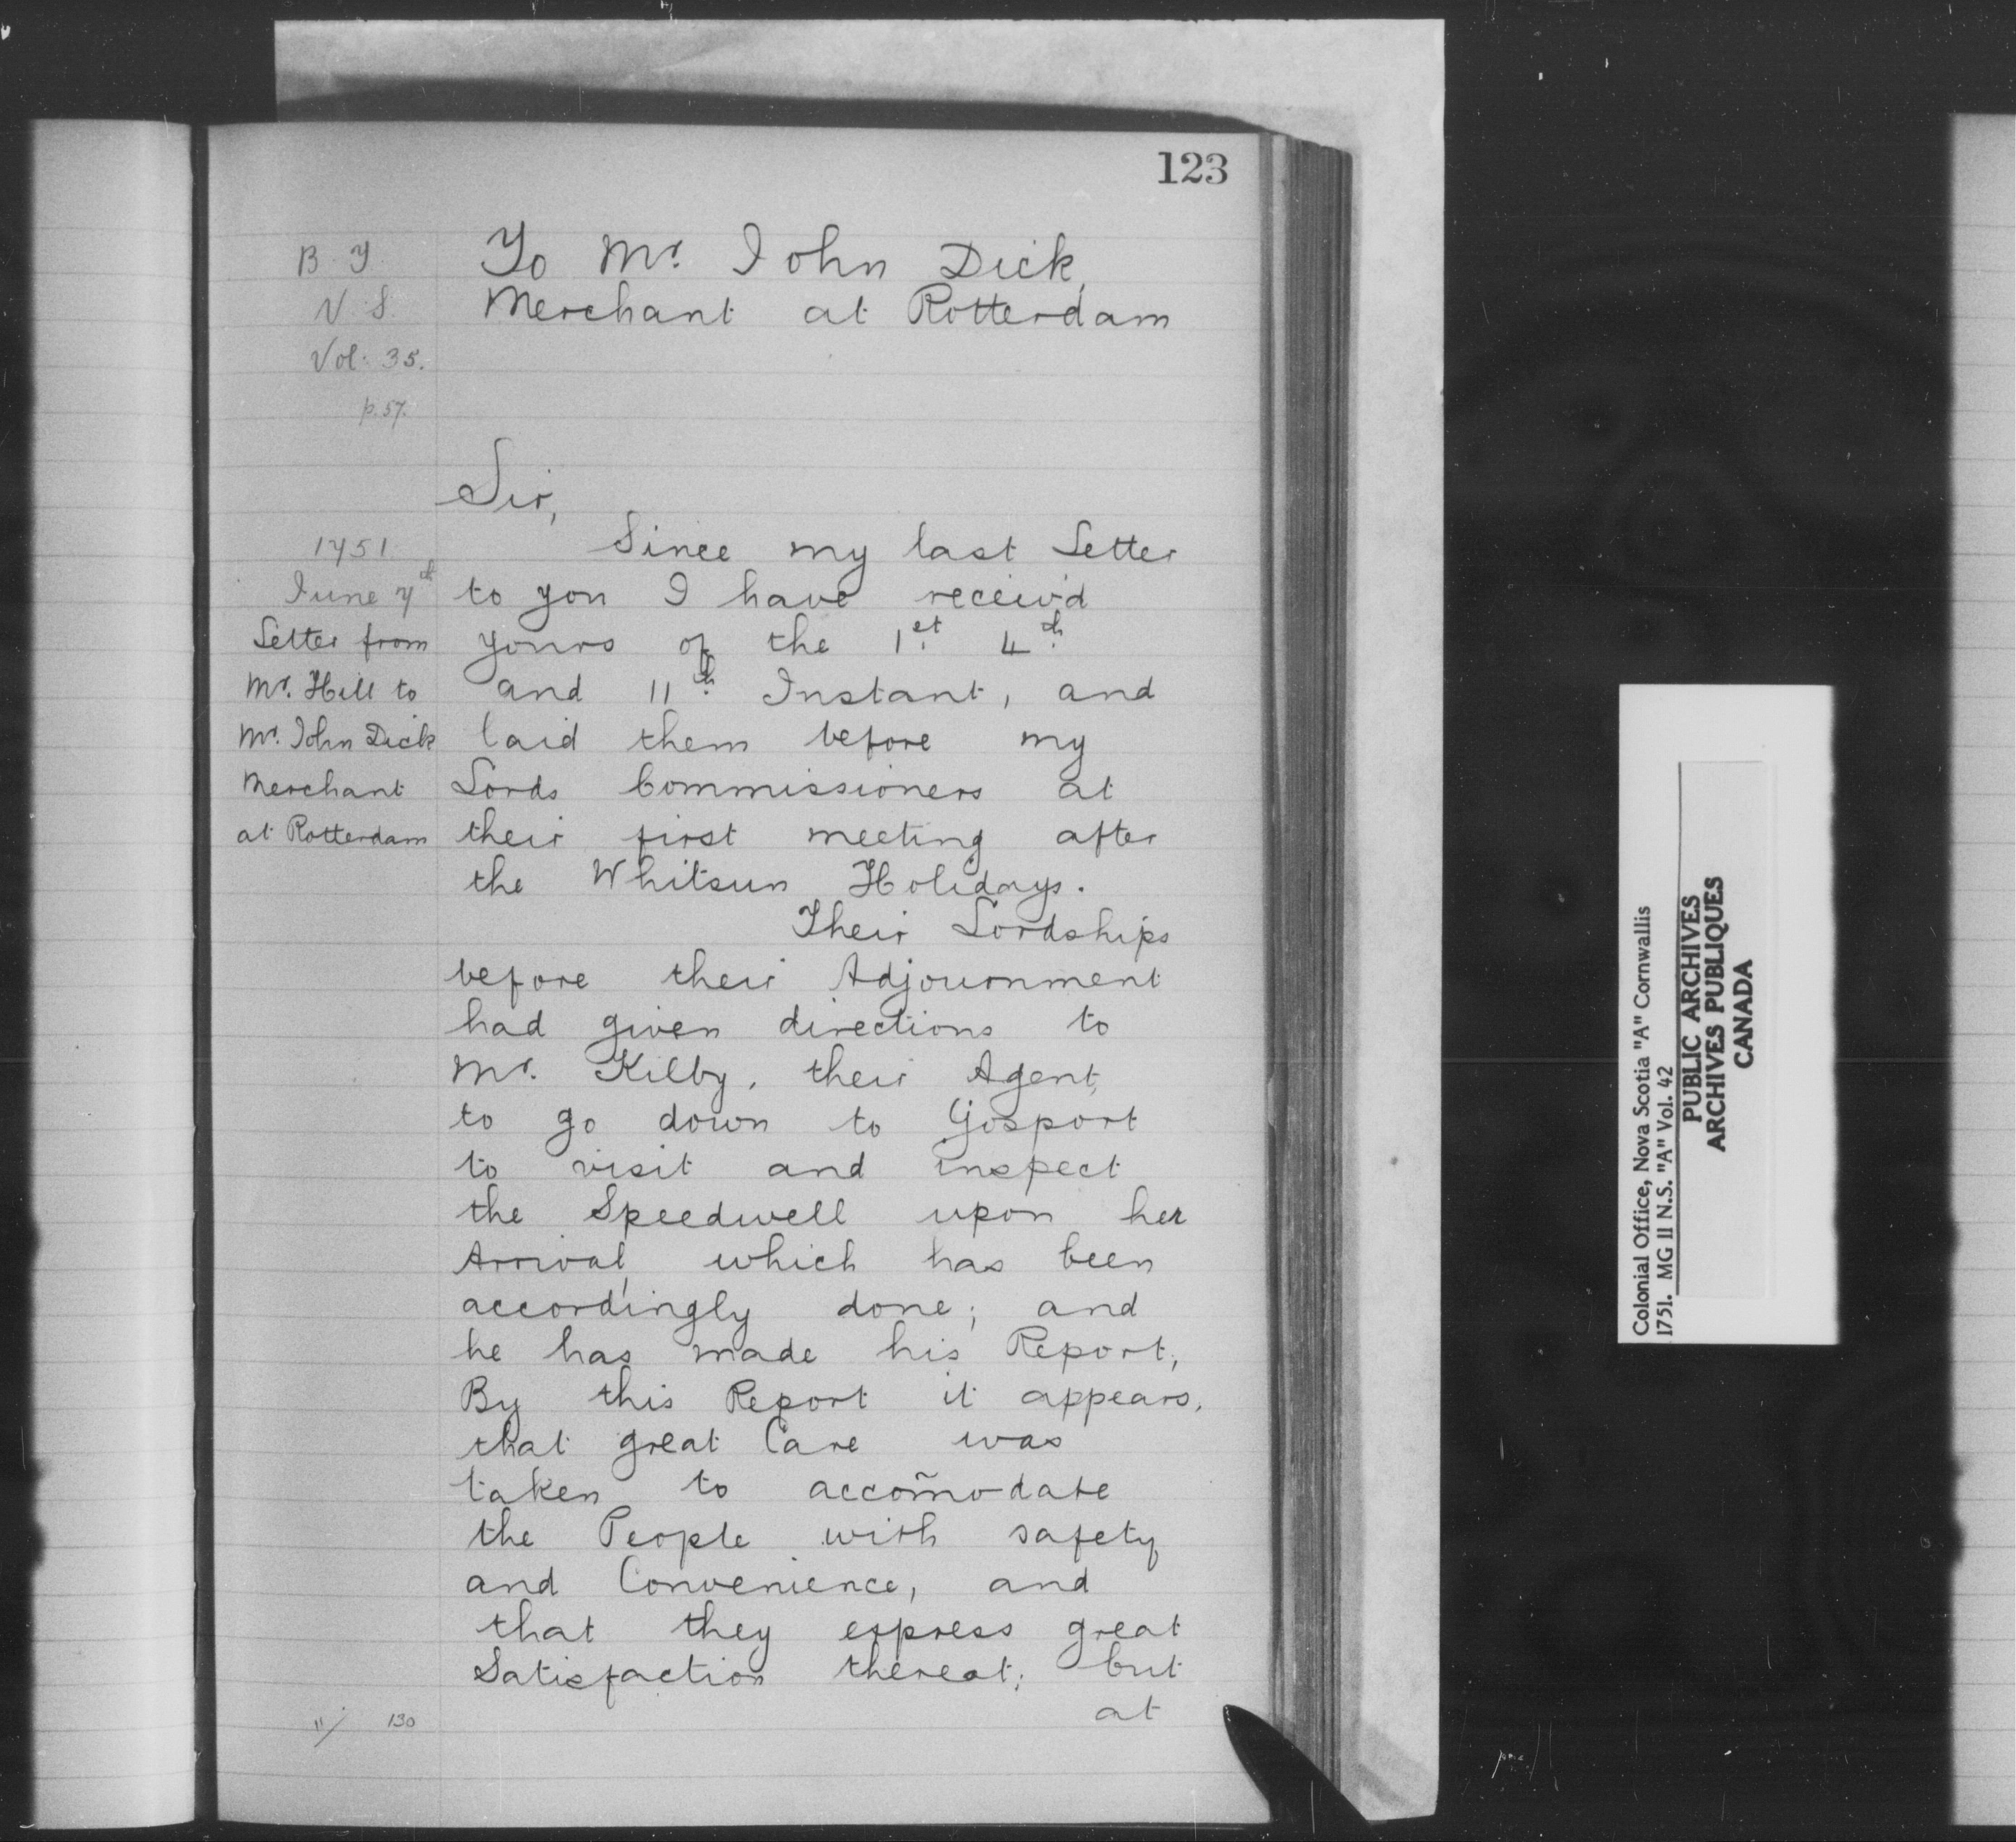 123
B. T.
N. S.
Vol: 35.
p. 57.
To Mr. John Dick,
Merchant at Rotterdam
Sir,
1751.
June 7th
Letter from
Mr. Hill to
Mr. John Dick
Merchant
at Rotterdam
Since my last Letter
to you I have receiv'd
yours of the 1st. 4th.
and 11th. Instant, and
laid them before my
Lords Commissioners at
their first meeting after
the Whitsun Holidays.
Their Lordships
before their Adjournment
had given directions to
Mr. Kilby, their Agent,
to go down to Gosport
to visit and inspect
the Speedwell upon her
Arrival, which has been
accordingly done; and
he has made his Report;
By this Report it appears,
that great Care was
taken to accom̃odate
the People with safety
and Convenience, and
that they express great
Satisfaction thereat; but
at
11/ 130
Colonial Office, Nova Scotia "A" Cornwallis
1751. MG 11 N.S. "A" Vol. 42
PUBLIC ARCHIVES
ARCHIVES PUBLIQUES
CANADA